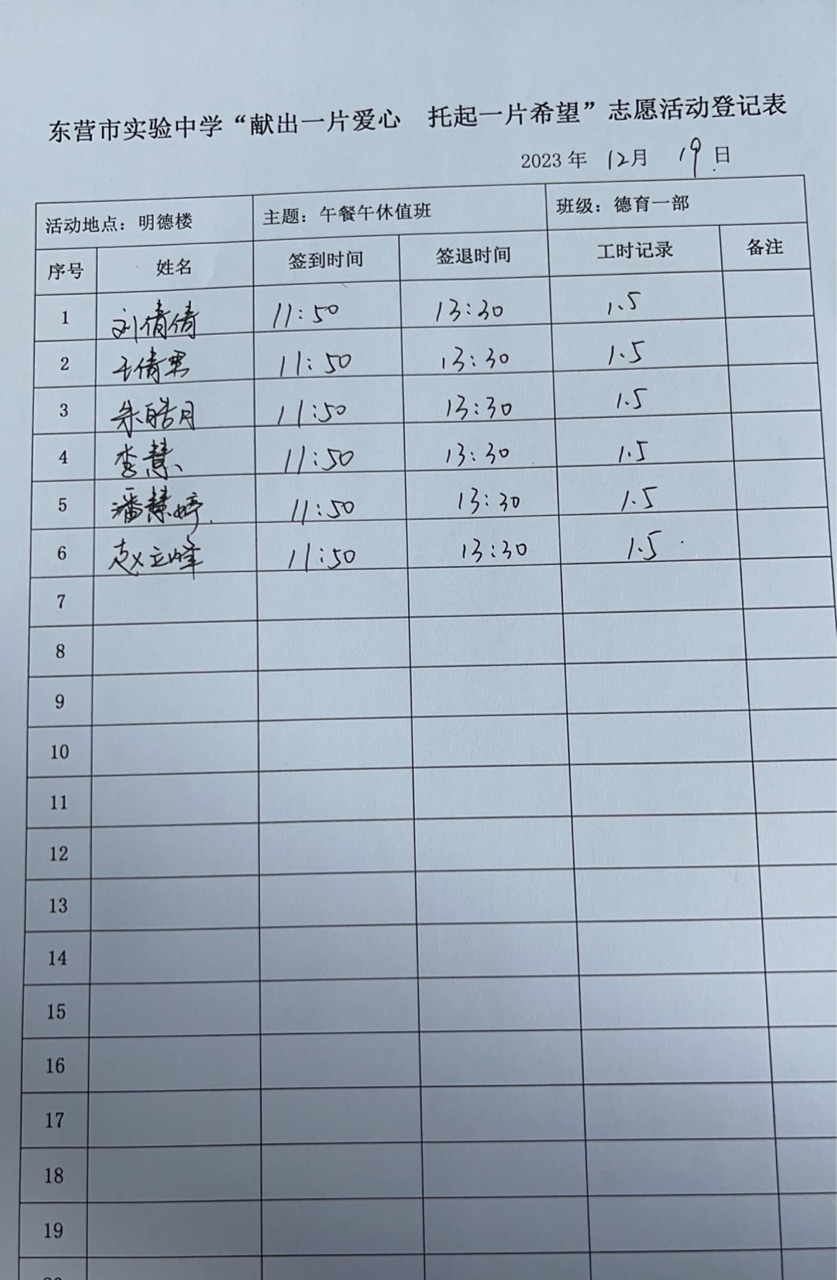 东营市实验中学“献出一片爱心　托起一片希望”志愿活动登记表
2023 年 12月 19日
活动地点：明德楼 主题：午餐午休值班 班级：德育一部
序号 姓名 签到时间 签退时间 工时记录 备注
1 刘倩倩 11:50 13:30 1.5
2 于倩男 11:50 13:30 1.5
3 朱皓月 11:50 13:30 1.5
4 李慧 11:50 13:30 1.5
5 潘慧婷 11:50 13:30 1.5
6 赵立峰 11:50 13:30 1.5
7
8
9
10
11
12
13
14
15
16
17
18
19